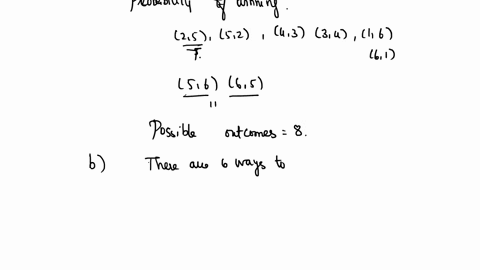 Probability of winning.
(2,5), (5,2), (4,3) (3,4), (1,6)
7. (6,1)
(5,6) (6,5)
11
Possible outcomes = 8.
b) There are 6 ways to